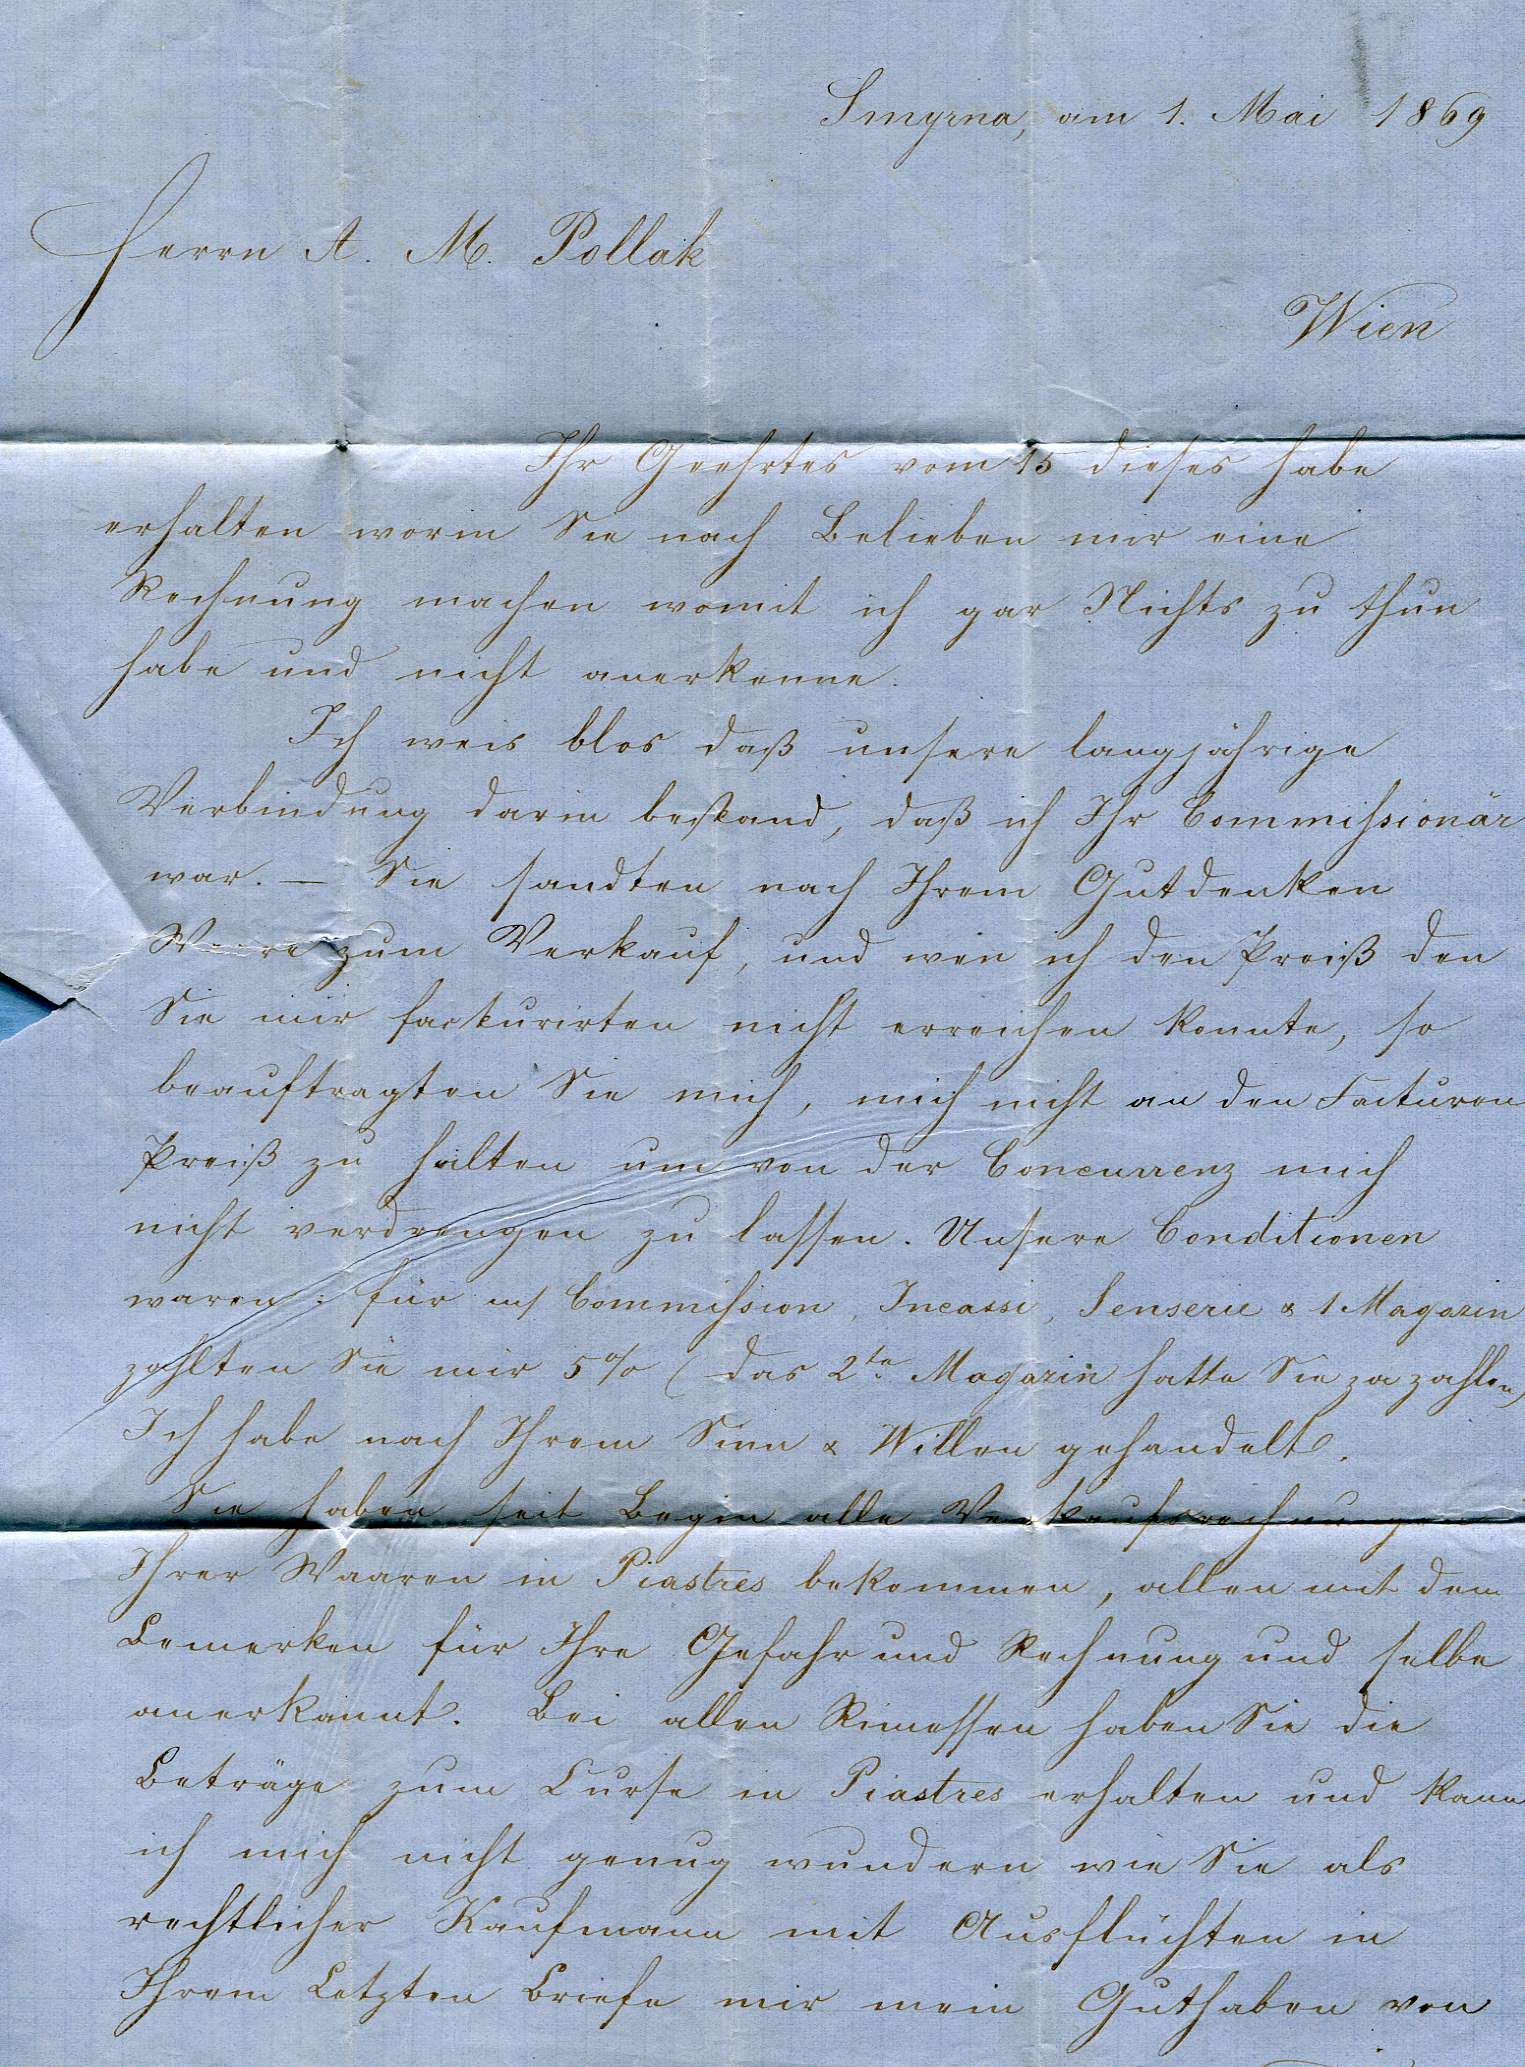 Smyrna, am 1. Mai 1869
Herrn A. M. Pollak
Wien
Ihr Geehrtes vom 15 dieses habe
erhalten worin Sie nach Belieben mir eine
Rechnung machen womit ich gar Nichts zu thun
habe und nicht anerkenne.
Ich weis blos daß unsere langjährige
Verbindung darin bestand, daß ich Ihr Commissionär
war. — Sie sandten nach Ihrem Gutdenken
Waare zum Verkauf, und wen ich den Preiß den
Sie mir fackturirten nicht erreichen konnte, so
beauftragten Sie mich, mich nicht an den Facturen
Preiß zu halten um von der Concurrenz mich
nicht verdrengen zu lassen. Unsere Conditionen
waren: für m/ Commission, Incassi, Senserie & 1 Magazin
zahlten Sie mir 5% (das 2te Magazin hatte Sie za zahlen)
Ich habe nach Ihrem Sinn & Willen gehandelt.
Sie haben seit Begin alle Verkaufsrechnungen
Ihrer Waaren in Piastres bekommen, allen mit dem
Bemerken für Ihre Gefahr und Rechnung und selbe
anerkannt. Bei allen Rimessen haben Sie die
Beträge zum Curse in Piastres erhalten und kann
ich mich nicht genug wundern wie Sie als
rechtlicher Kaufmann mit Ausflüchten in
Ihrem Letzten Briefe mir mein Guthaben von